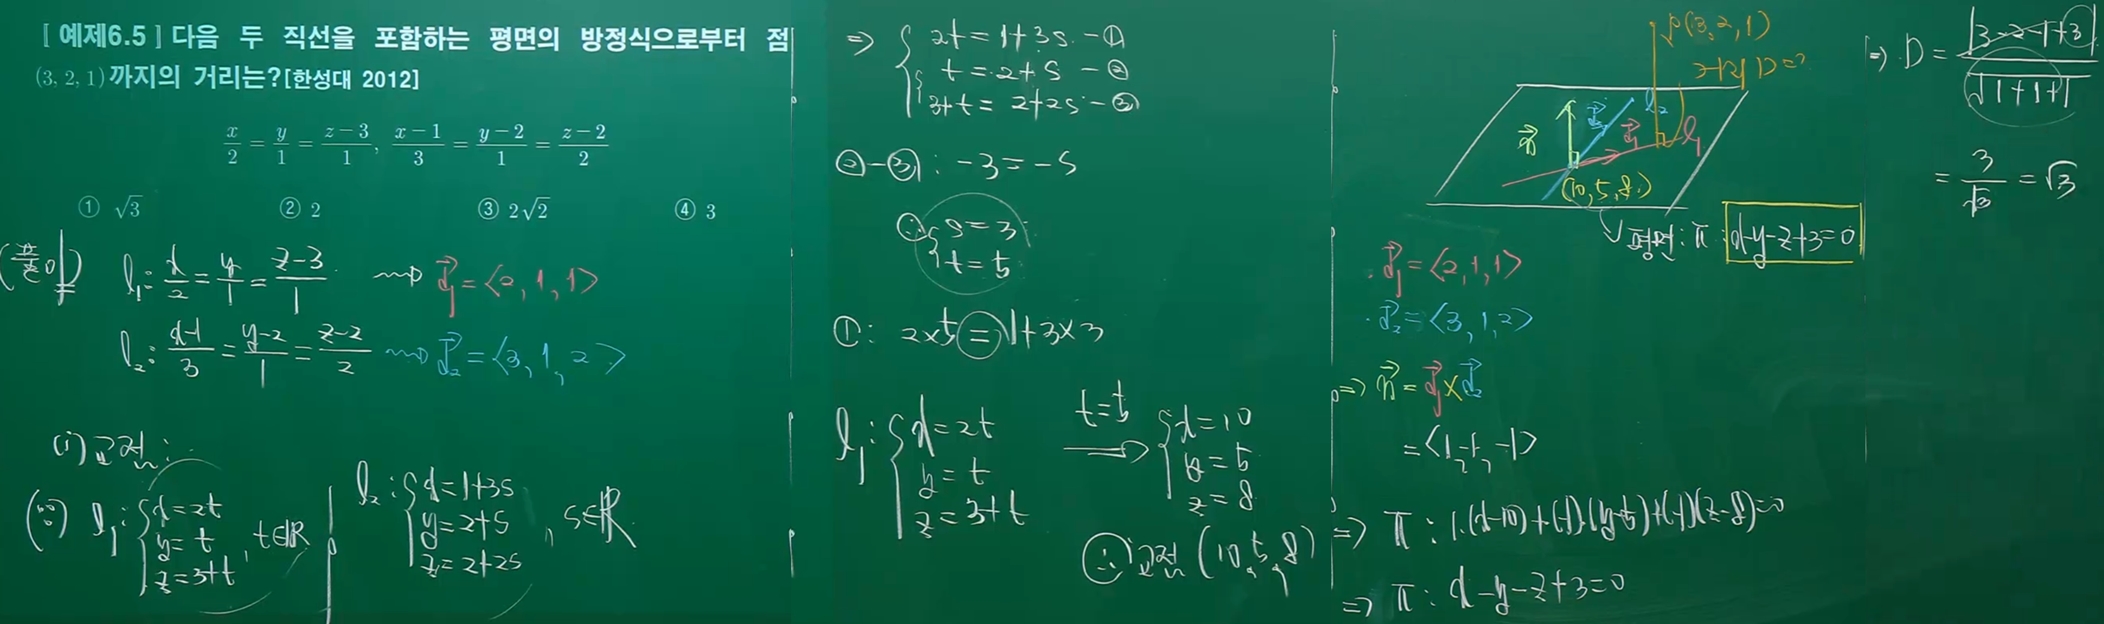 [ 예제6.5 ] 다음 두 직선을 포함하는 평면의 방정식으로부터 점
(3, 2, 1)까지의 거리는?[한성대 2012]
x/2 = y/1 = (z−3)/1, (x−1)/3 = (y−2)/1 = (z−2)/2
① √3 ② 2 ③ 2√2 ④ 3
l₁: x/2 = y/1 = (z-3)/1 ⇝ d₁ = <2, 1, 1>
l₂: (x-1)/3 = (y-2)/1 = (z-2)/2 ⇝ d₂ = <3, 1, 2>
(i) 교점:
(∵) l₁: { x=2t
y=t
z=3+t , t∈ℝ
l₂: { x=1+3s
y=2+s
z=2+2s , s∈ℝ
⇒ { 2t=1+3s -①
t=2+s -②
3+t=2+2s -③
②-③: -3=-s
∴ { s=3
t=5
①: 2×5=1+3×3
l₁: { x=2t
y=t
z=3+t
t=5
{ x=10
y=5
z=8
∴ 교점 (10, 5, 8)
P(3, 2, 1)
거리 D=?
n
d₂
l₂
d₁
l₁
(10, 5, 8)
평면: π: x-y-z+3=0
d₁ = <2, 1, 1>
d₂ = <3, 1, 2>
⇒ n = d₁×d₂
= <1, -1, -1>
⇒ π: 1·(x-10)+(-1)·(y-5)+(-1)(z-8)=0
⇒ π: x-y-z+3=0
⇒ D = |3-2-1+3| / √(1+1+1)
= 3/√3 = √3